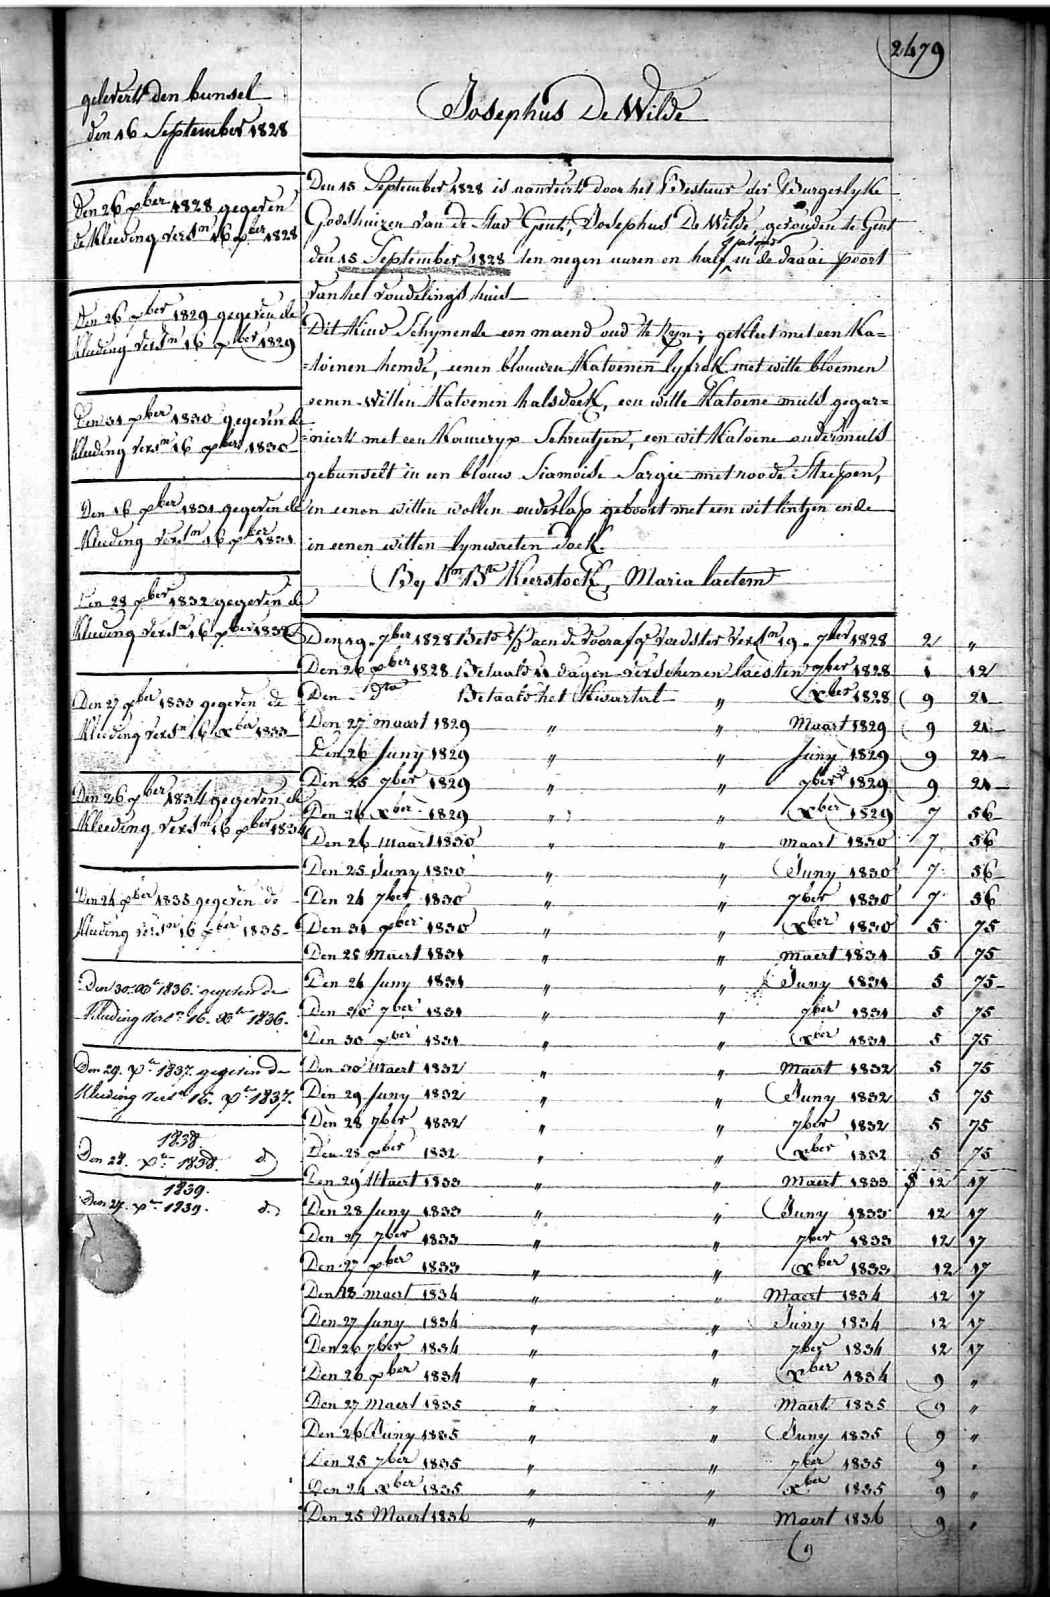 2479
gelevert den bunsel
den 16 September 1828
Josephus De Wilde
Den 26 xber 1828 gegeven
de Kleeding verst.n 16 xber 1828
Den 26 xber 1829 gegeven de
Kleeding verst.n 16 xber 1829
Den 31 xber 1830 gegeven de
Kleeding verst.n 16 xber 1830
Den 16 xber 1831 gegeven de
Kleeding verst.n 16 xber 1831
Den 28 xber 1832 gegeven de
Kleeding verst.n 16 xber 1832
Den 27 xber 1833 gegeven de
Kleeding verst.n 16 xber 1833
Den 26 xber 1834 gegeven de
Kleeding verst.n 16 xber 1834
Den 24 xber 1835 gegeven de
Kleeding verst.n 16 xber 1835
Den 30 1836 gegeven de
Kleeding verst.n 16 1836.
Den 29. 1837 gegeven de
Kleeding verst.n 16. 1837.
1838.
Den 28. 1838. d.
1839.
Den 27. 1839. d.
Den 15 September 1828 is aanveert door het Bestuur der Burgerlyke
Godshuizen van de Stad Gent, Josephus De Wilde, gevonden te Gent
den 15 September 1828 ten negen uuren en half in de draai poort
van het vondelings huis
Dit Kind Schynende een maend oud te zyn; gekleet met een Ka=
=toenen hemde, eenen blouwen Katoenen lyfrok met witte bloemen
eenen witten Katoenen halsdoek, een witte Katoene muts gegar=
=niert met een Kameryx Schreutjen, een wit Katoene ondermuts
gebunselt in een blouw Siamoise Sargie met roode Strepen,
in eenen witten wollen onderlap geboort met een wit lintjen ende
in eenen witten lynwaeten doek.
By Keerstock, Maria Laetem
Den 19. 7ber 1828 Bet.d aen de voorafg.e voedster verst.n 19. 7ber 1828 2 "
Den 26 xber 1828 Betaald 11 dagen verschenen laesten 7ber 1828 1 12
Den dto Betaald het Kwartal " xber 1828 9 21
Den 27 maart 1829 " " Maart 1829 9 21
Den 26 Juny 1829 " " Juny 1829 9 21
Den 25 7ber 1829 " " 7ber 1829 9 21
Den 26 xber 1829 " " xber 1829 7 56
Den 26 Maart 1830 " " maart 1830 7 56
Den 25 Juny 1830 " " Juny 1830 7 56
Den 24 7ber 1830 " " 7ber 1830 7 56
Den 31 xber 1830 " " xber 1830 5 75
Den 25 Maert 1831 " " maert 1831 5 75
Den 26 Juny 1831 " " Juny 1831 5 75
Den 30 7ber 1831 " " 7ber 1831 5 75
Den 30 xber 1831 " " xber 1831 5 75
Den 30 Maert 1832 " " Maert 1832 5 75
Den 29 Juny 1832 " " Juny 1832 5 75
Den 28 7ber 1832 " " 7ber 1832 5 75
Den 28 xber 1832 " " xber 1832 5 75
Den 29 Maert 1833 " " Maert 1833 12 17
Den 28 Juny 1833 " " Juny 1833 12 17
Den 27 7ber 1833 " " 7ber 1833 12 17
Den 27 xber 1833 " " xber 1833 12 17
Den 28 maert 1834 " " Maert 1834 12 17
Den 27 Juny 1834 " " Juny 1834 12 17
Den 26 7ber 1834 " " 7ber 1834 12 17
Den 26 xber 1834 " " xber 1834 9 "
Den 27 Maert 1835 " " Maert 1835 9 "
Den 26 Juny 1835 " " Juny 1835 9 "
Den 25 7ber 1835 " " 7ber 1835 9 "
Den 24 xber 1835 " " xber 1835 9 "
Den 25 Maert 1836 " " Maert 1836 9 "